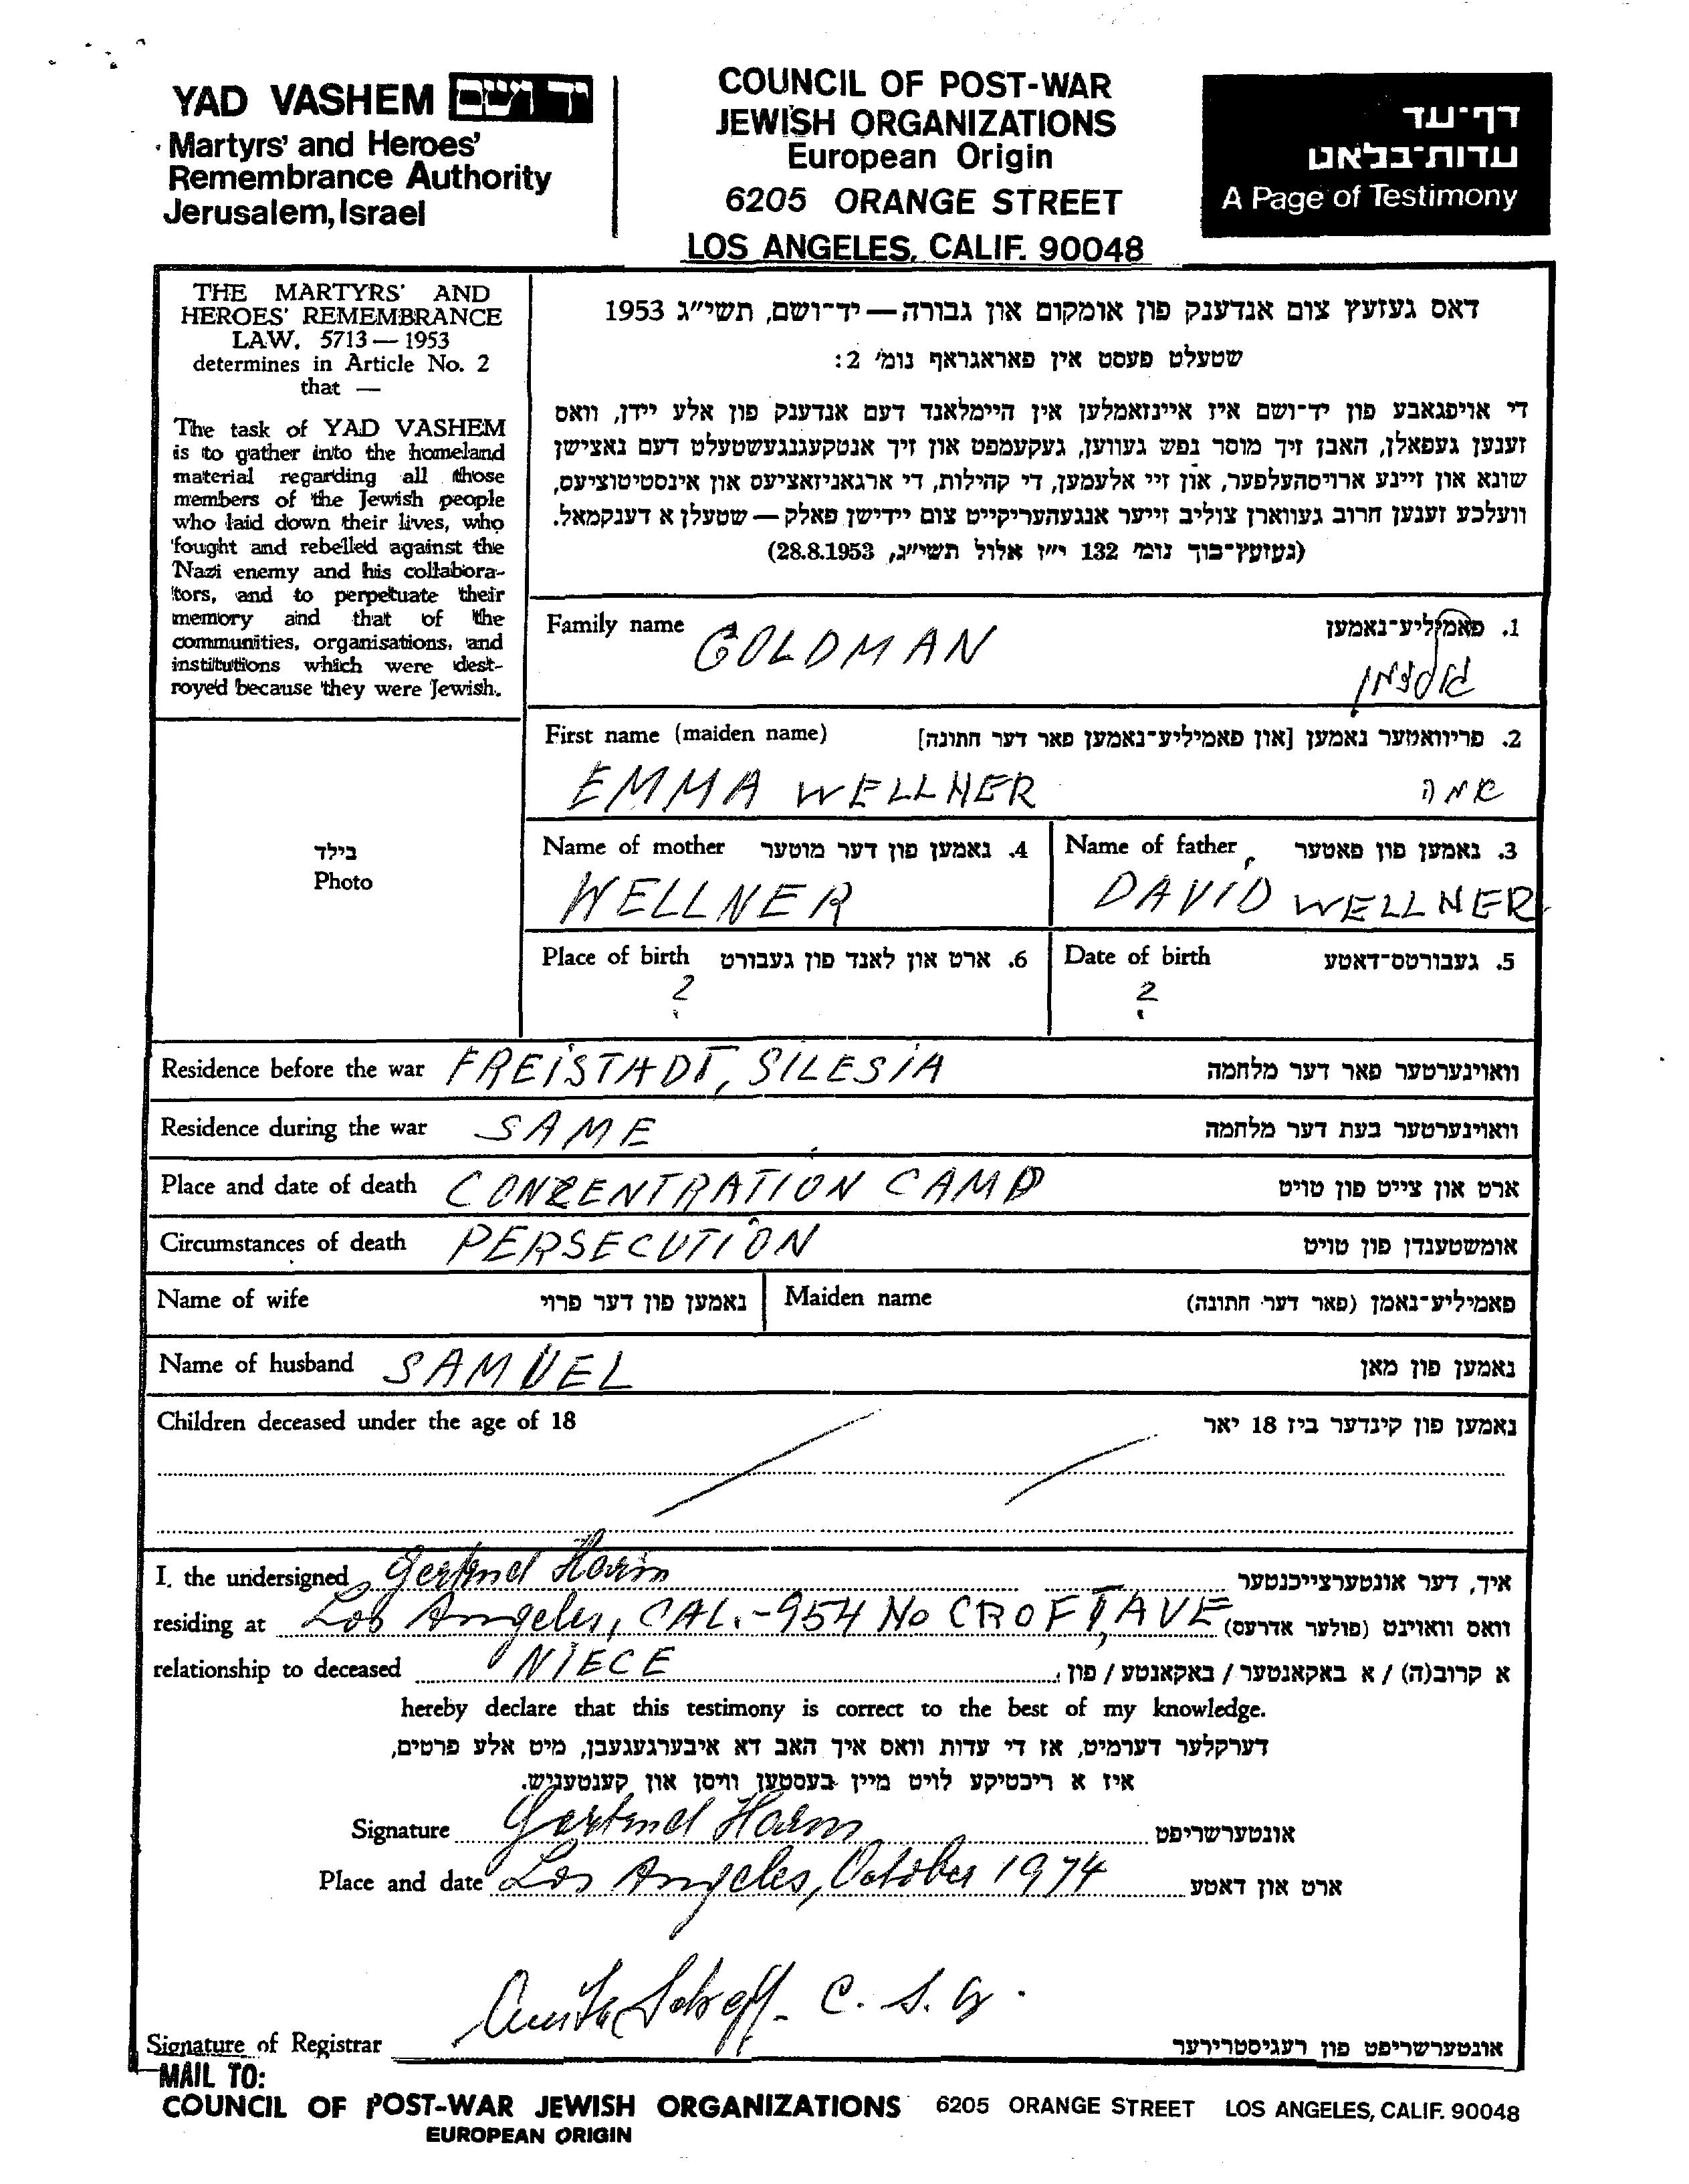 YAD VASHEM יד ושם
Martyrs' and Heroes'
Remembrance Authority
Jerusalem, Israel
COUNCIL OF POST-WAR
JEWISH ORGANIZATIONS
European Origin
6205 ORANGE STREET
LOS ANGELES, CALIF. 90048
דף־עד
עדות־בלאט
A Page of Testimony
THE MARTYRS' AND
HEROES' REMEMBRANCE
LAW, 5713 — 1953
determines in Article No. 2
that —
The task of YAD VASHEM
is to gather into the homeland
material regarding all those
members of the Jewish people
who laid down their lives, who
fought and rebelled against the
Nazi enemy and his collabora-
tors, and to perpetuate their
memory and that of the
communities, organisations, and
institutions which were dest-
royed because they were Jewish.
דאס געזעץ צום אנדענק פון אומקום און גבורה — יד־ושם, תשי״ג 1953
שטעלט פעסט אין פאראגראף נומ׳ 2:
די אויפגאבע פון יד־ושם איז איינזאמלען אין היימלאנד דעם אנדענק פון אלע יידן, וואס
זענען געפאלן, האבן זיך מוסר נפש געווען, געקעמפט און זיך אנטקעגנגעשטעלט דעם נאצישן
שונא און זיינע ארויסהעלפער, און זיי אלעמען, די קהילות, די ארגאניזאציעס און אינסטיטוציעס,
וועלכע זענען חרוב געווארן צוליב זייער אנגעהעריקייט צום יידישן פאלק — שטעלן א דענקמאל.
(געזעץ־בוך נומ׳ 132 י״ז אלול תשי״ג, 28.8.1953)
Family name GOLDMAN 1. פאמיליע־נאמען
גולדמן
First name (maiden name) 2. פריוואטער נאמען [און פאמיליע־נאמען פאר דער חתונה]
EMMA WELLNER אמה
בילד
Photo
Name of mother 4. נאמען פון דער מוטער
WELLNER
Name of father 3. נאמען פון פאטער
DAVID WELLNER
Place of birth 6. ארט און לאנד פון געבורט
?
Date of birth 5. געבורטס־דאטע
?
Residence before the war FREISTADT, SILESIA וואוינערטער פאר דער מלחמה
Residence during the war SAME וואוינערטער בעת דער מלחמה
Place and date of death CONZENTRATION CAMP ארט און צייט פון טויט
Circumstances of death PERSECUTION אומשטענדן פון טויט
Name of wife נאמען פון דער פרוי Maiden name פאמיליע־נאמן (פאר דער חתונה)
Name of husband SAMUEL נאמען פון מאן
Children deceased under the age of 18 נאמען פון קינדער ביז 18 יאר
I, the undersigned Gertrud איך, דער אונטערצייכנטער
residing at Los Angeles, CAL. - 954 No CROFT, AVE וואס וואוינט (פולער אדרעס)
relationship to deceased NIECE א קרוב(ה) / א באקאנטער / באקאנטע / פון
hereby declare that this testimony is correct to the best of my knowledge.
דערקלער דערמיט, אז די עדות וואס איך האב דא איבערגעגעבן, מיט אלע פרטים,
איז א ריכטיקע לויט מיין בעסטען וויסן און קענטעניש.
Signature Gertrud אונטערשריפט
Place and date Los Angeles, October 1974 ארט און דאטע
C. S. W.
Signature of Registrar אונטערשריפט פון רעגיסטרירער
MAIL TO:
COUNCIL OF POST-WAR JEWISH ORGANIZATIONS 6205 ORANGE STREET LOS ANGELES, CALIF. 90048
EUROPEAN ORIGIN